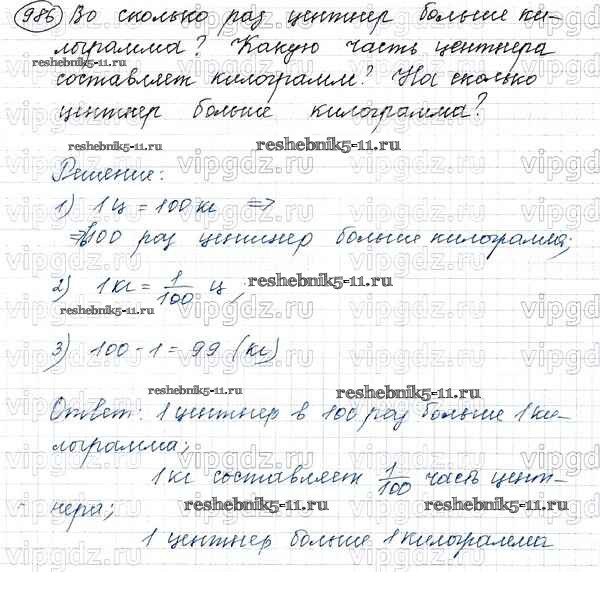 986 Во сколько раз центнер больше ки-
лограмма? Какую часть центнера
составляет килограмм? На сколько
центнер больше килограмма?
reshebnik5-11.ru
reshebnik5-11.ru
reshebnik5-11.ru
Решение:
1) 1 ц = 100 кг ⇒
⇒ в 100 раз центнер больше килограмма;
2) 1 кг = 1/100 ц,
reshebnik5-11.ru
reshebnik5-11.ru
3) 100 - 1 = 99 (кг)
reshebnik5-11.ru
reshebnik5-11.ru
Ответ: 1 центнер в 100 раз больше 1 ки-
лограмма;
1 кг составляет 1/100 часть цент-
нера;
reshebnik5-11.ru
reshebnik5-11.ru
1 центнер больше 1 килограмма
vipgdz.ru